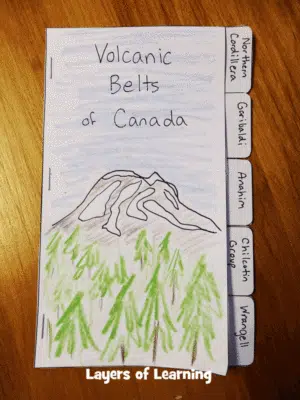 Volcanic
Belts
of Canada
Northern
Cordillera
Garibaldi
Anahim
Chilcotin
Group
Wrangell
Layers of Learning